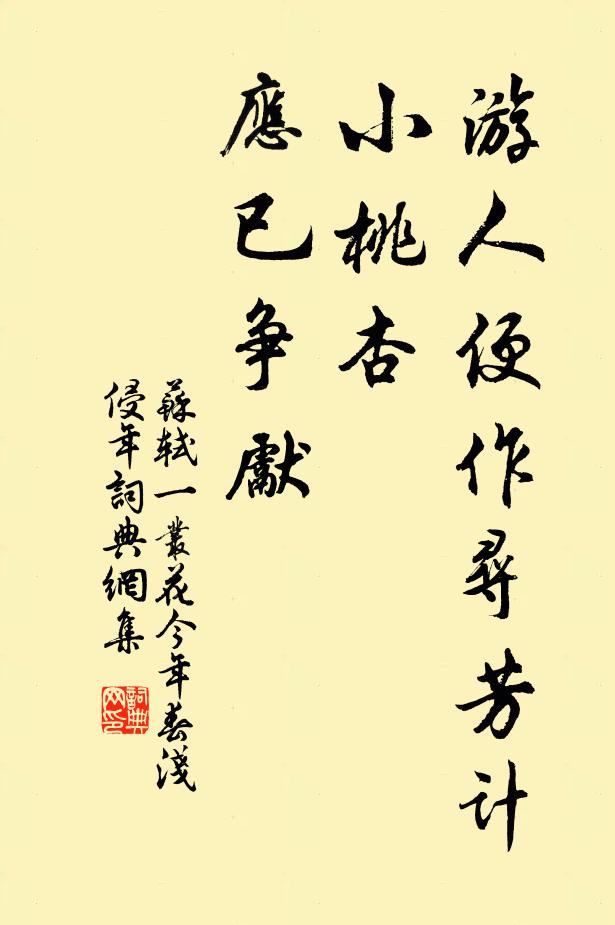 游人便作尋芳計
小桃杏
應已争獻
蘇軾一叢花今年春淺
侵年詞典網集
詞典
网印